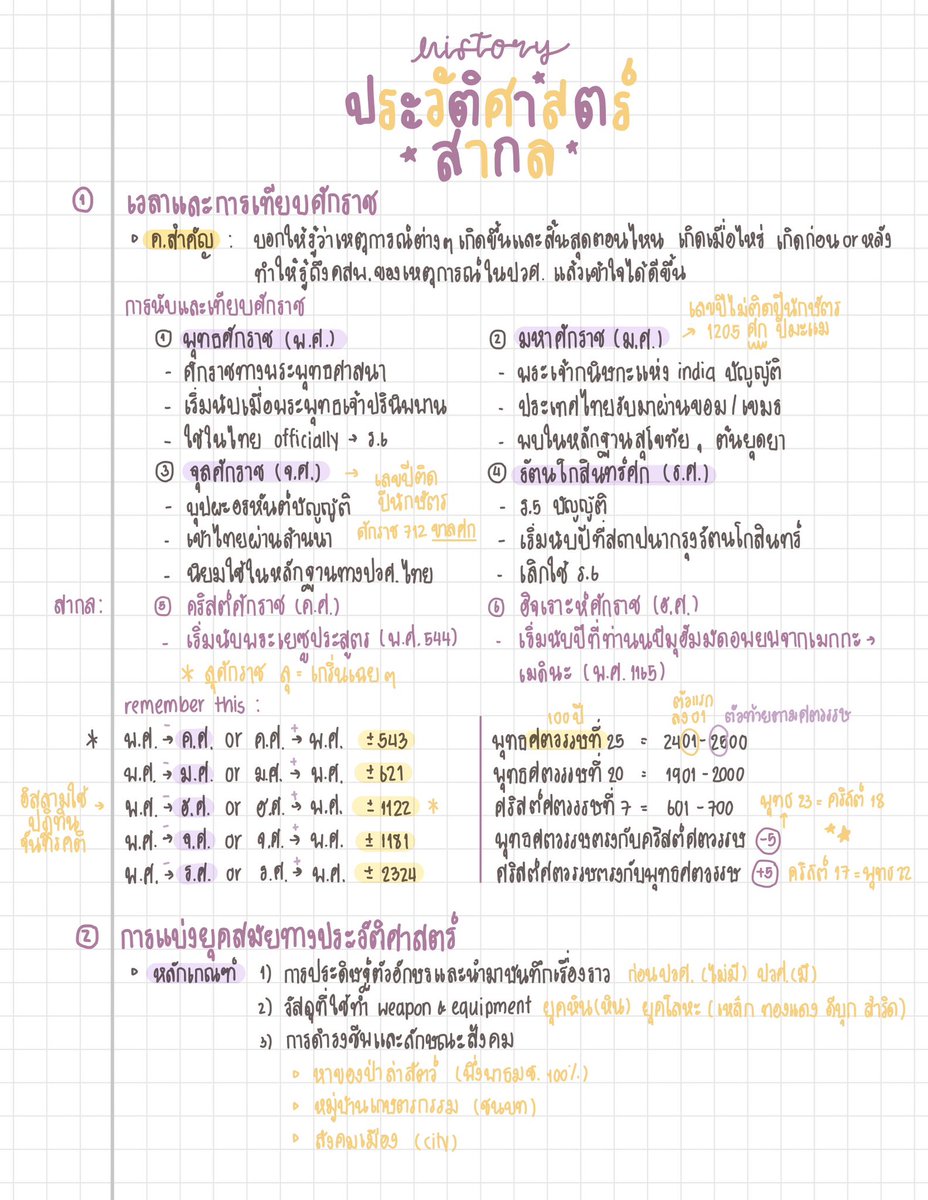 history
ประวัติศาสตร์
สากล
① เวลาและการเทียบศักราช
ค.สำคัญ : บอกให้รู้ว่าเหตุการณ์ต่างๆ เกิดขึ้นและสิ้นสุดตอนไหน เกิดเมื่อไหร่ เกิดก่อน or หลัง
ทำให้รู้ถึงคสพ.ของเหตุการณ์ในปวศ. แล้วเข้าใจได้ดีขึ้น
การนับและเทียบศักราช
① พุทธศักราช (พ.ศ.)
- ศักราชทางพระพุทธศาสนา
- เริ่มนับเมื่อพระพุทธเจ้าปรินิพพาน
- ใช้ในไทย officially → ร.๖
② มหาศักราช (ม.ศ.)
เลขปีไม่ติดปีนักษัตร
→ 1205 ศก ปีมะแม
- พระเจ้ากนิษกะแห่ง india บัญญัติ
- ประเทศไทยรับมาผ่านขอม / เขมร
- พบในหลักฐานสุโขทัย , ต้นยุดยา
③ จุลศักราช (จ.ศ.) → เลขปีติด
ปีนักษัตร
ศักราช 712 ขาลศก
- บุปผะอรหันต์บัญญัติ
- เข้าไทยผ่านล้านนา
- นิยมใช้ในหลักฐานทางปวศ.ไทย
④ รัตนโกสินทร์ศก (ร.ศ.)
- ร.5 บัญญัติ
- เริ่มนับปีที่สถาปนากรุงรัตนโกสินทร์
- เลิกใช้ ร.๖
สากล :
⑤ คริสต์ศักราช (ค.ศ.)
- เริ่มนับพระเยซูประสูตร (พ.ศ. 544)
* ลุศักราช ลุ = เกริ่นเฉยๆ
⑥ ฮิจเราะห์ศักราช (ฮ.ศ.)
- เริ่มนับปีที่ท่านนบีมุฮัมมัดอพยพจากเมกกะ →
เมดินะ (พ.ศ. 1165)
remember this :
* พ.ศ. → ค.ศ. or ค.ศ. → พ.ศ. ± 543
พ.ศ. → ม.ศ. or ม.ศ. → พ.ศ. ± 621
อิสลามใช้
ปฏิทิน
จันทรคติ
พ.ศ. → ฮ.ศ. or ฮ.ศ. → พ.ศ. ± 1122 *
พ.ศ. → จ.ศ. or จ.ศ. → พ.ศ. ± 1181
พ.ศ. → ร.ศ. or ร.ศ. → พ.ศ. ± 2324
100 ปี
ตัวแรก
ลง 01
ตัวท้ายตามศตวรรษ
พุทธศตวรรษที่ 25 = 2401 - 2500
พุทธศตวรรษที่ 20 = 1901 - 2000
คริสต์ศตวรรษที่ 7 = 601 - 700
พุทธ 23 = คริสต์ 18
พุทธศตวรรษตรงกับคริสต์ศตวรรษ -5
คริสต์ศตวรรษตรงกับพุทธศตวรรษ +5 คริสต์ 17 = พุทธ 22
② การแบ่งยุคสมัยทางประวัติศาสตร์
หลักเกณฑ์ 1) การประดิษฐ์ตัวอักษรและนำมาบันทึกเรื่องราว ก่อนปวศ. (ไม่มี) ปวศ. (มี)
2) วัสดุที่ใช้ทำ weapon & equipment ยุคหิน (หิน) ยุคโลหะ (เหล็ก ทองแดง ดีบุก สำริด)
3) การดำรงชีพและลักษณะสังคม
หาของป่าล่าสัตว์ (พึ่งพาธมช. 100%)
หมู่บ้านเกษตรกรรม (ชนบท)
สังคมเมือง (city)